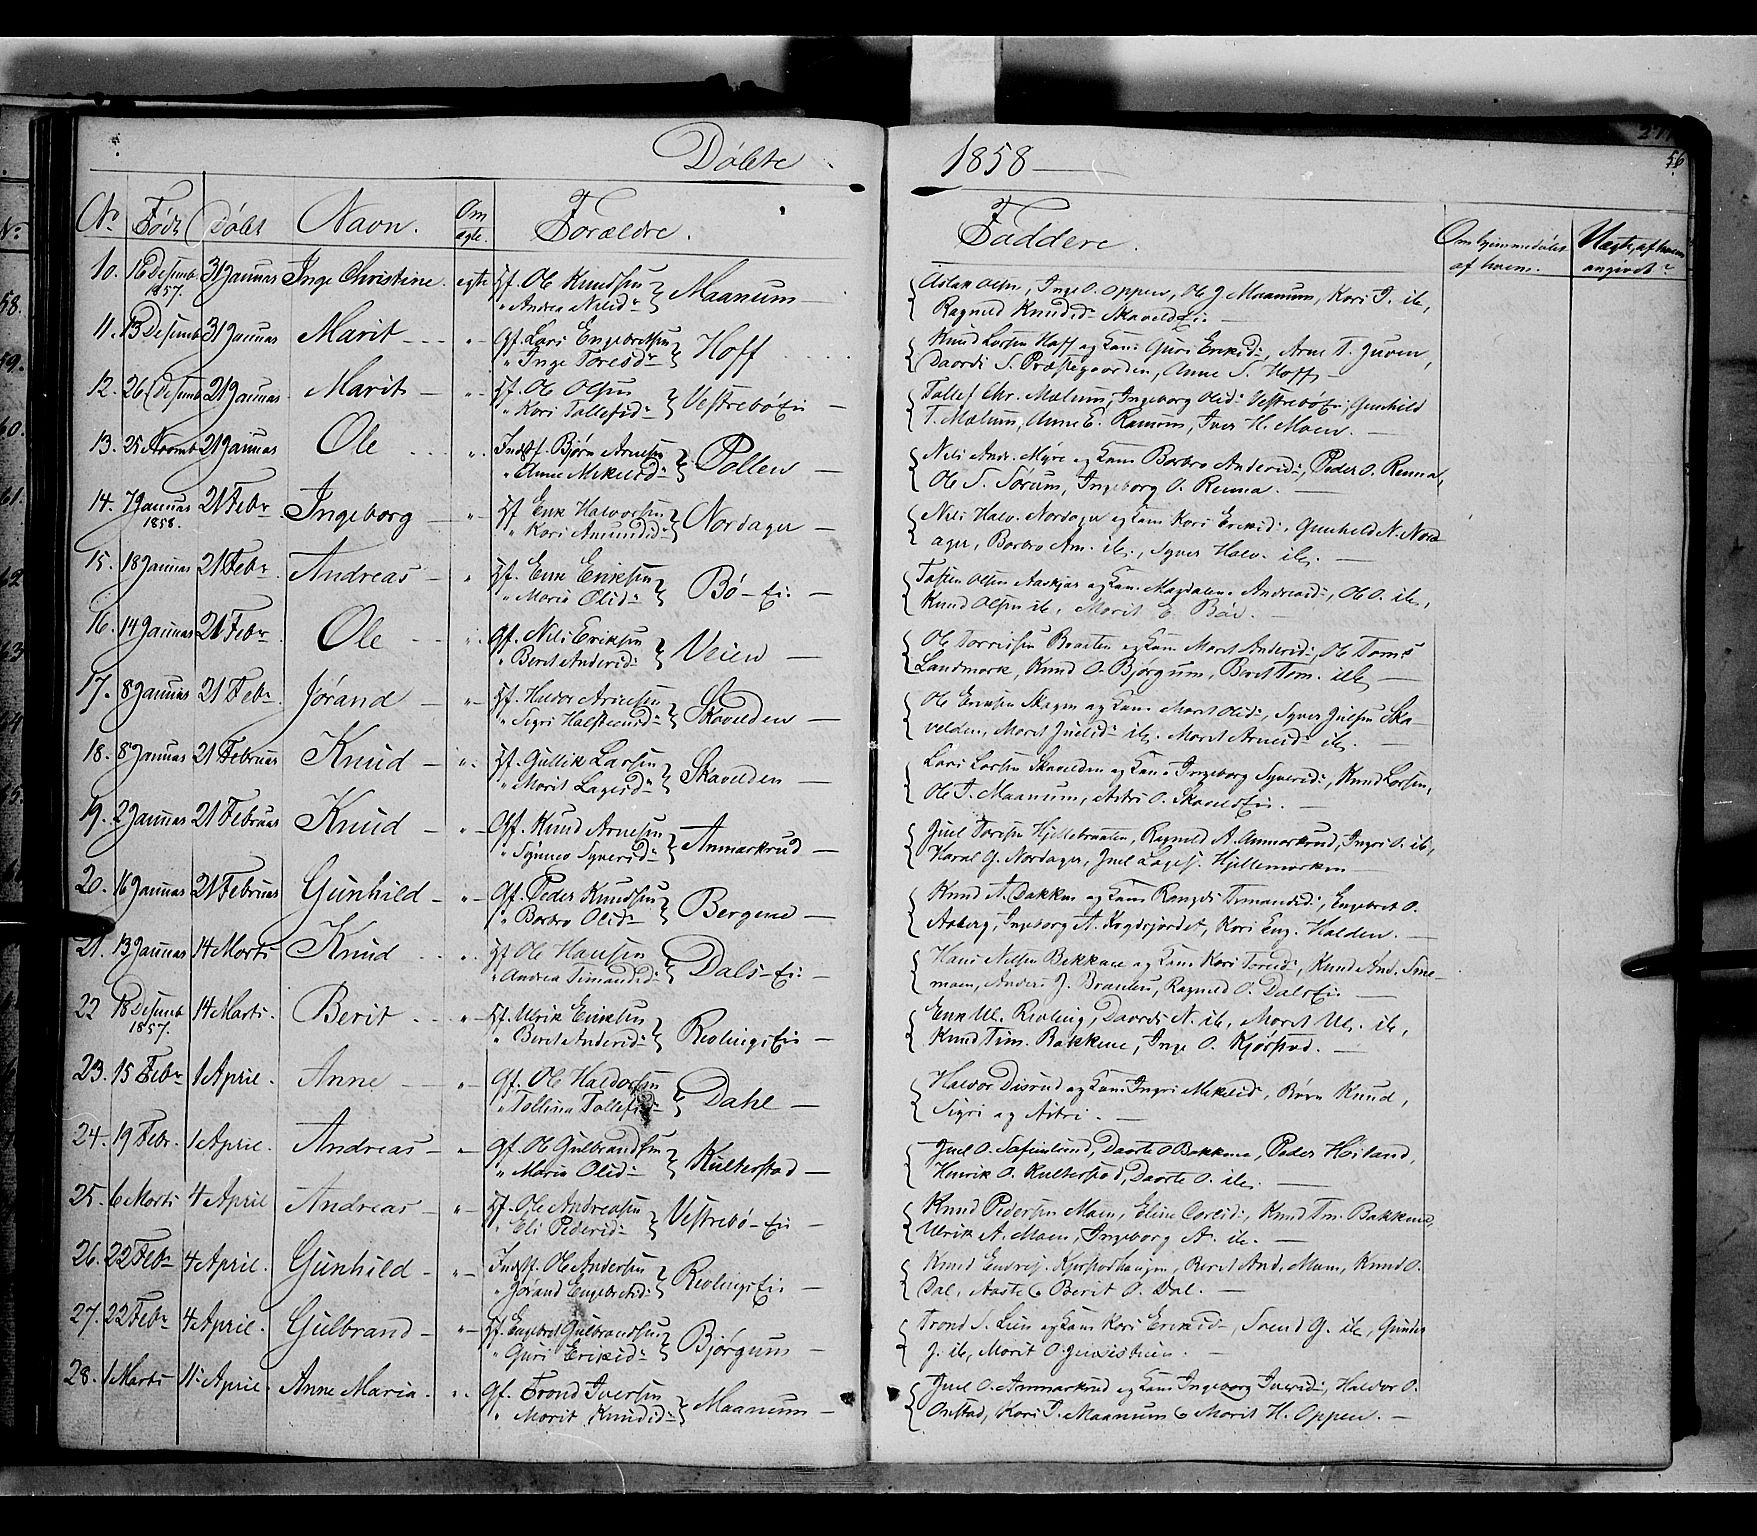 Døbte
1858
56
Nr. Født Døbt Navn. Om ægte. Forældre. Faddere. Om hjemmedøbt af hvem. Uægte, af hvem angivet
10. 16 Desemb 1857. 31 Januar Inge Christine. egte Hf. Ole Knudsen
" Andrea Nilsd. } Maanum
Aslak Olsen, Inge O. Oppen, Ole J. Maanum, Kari T. ib,
Ragnild Knudsd. SkaveldEi
11. 13 Desemb 31 Januar Marit " Gf. Lars Engebretsen
" Inge Toresd. } Hoff
Knud Larsen Hoff og Kone Guri Eriksd., Arne T. Juven,
Daardi S. Præstegaarden, Anne S. Hoff
12. 26 Desemb 21 Januar Marit " Hf. Ole Olsen
" Kari Tollefsd. } VestrebøEi
Tollef Chr. Mælum, Ingeborg Olsd. VestrebøEi, Gunhild
T. Mælum, Anne E. Ramum, Iver H. Moen.
13. 25 Novemb 21 Januar Ole " Indst. Bjørn Arnesen
" Anne Mikelsd. } Pollen
Nils Andr. Myre og Kone Barbro Andersd., Peder O. Renna,
Ole S. Sørum, Ingeborg O. Renna.
14. 7 Januar 1858. 21 Febr Ingeborg " Hf. Erik Halvorsen
" Kari Amundsd. } Nordager
Nils Halv. Nordager og Kone Kari Eriksd., Gunhild N. Nord-
ager, Barbro Am. ib., Syver Halv. ib.
15. 18 Januar 21 Febr Andreas " Hf. Erik Eriksen
" Maria Olsd. } Bø-Ei.
Tosten Olsen Aaskjær og Kone Magdalene Andreasd., Ole O. ib,
Knud Olsen ib, Marit E. Bøe.
16. 14 Januar 21 Febr Ole " Gf. Nils Eriksen
" Berit Andersd. } Veien
Ole Torstensen Braaten og Kone Marit Andersd., Ole Toms
Landmark, Knud O. Bjørgum, Berit Tom. ib
17. 8 Januar 21 Febr. Jørand " Hf. Haldor Arnesen
" Sigri Halsteensd. } Skavelden
Ole Eriksen Skagen og Kone Marit Olsd., Syver Juelsen Ska-
velden, Marit Juelsd. ib, Marit Arnesd. ib.
18. 8 Januar 21 Februar Knud " Hf. Gullik Larsen
" Marit Lagesd. } Skavelden
Lars Larsen Skavelden og Kone Ingeborg Syversd., Knud Larsen,
Ole T. Maanum, Astri O. SkaveldEi.
19. 2 Januar 21 Februar Knud " Gf. Knud Arnesen
" Synnev Syversd. } Anmarkrud
Juel Toresen Hjellebraaten, Ragnild A. Anmarkrud, Ingri O. ib,
Haral G. Nordager, Juel Lages. Hjellemarken
20. 16 Januar 21 Februar Gunhild " Gf. Peder Knudsen
" Barbro Olsd. } Bergene
Knud A. Bakken og Kone Rangdi Timandsd., Engebret O.
Aaberg, Ingeborg A. Kogdsjordet, Kari Eng. Halden.
21. 13 Januar 14 Marts Knud " Hf. Ole Hansen
" Andrea Timandsd. } Dals-Ei
Hans Nilsen Bekkene og Kone Kari Toresd., Knud And. Sme-
moen, Anders J. Braaten, Ragnild O. DalsEi
22 18 Desemb 1857. 14 Marts. Berit " Hf. Ulrik Eriksen
" Berit Andersd. } RevlingsEi
Erik Ul. Revling, Daardi N. ib, Marit Ul. ib,
Knud Tim. Bakkene, Inge O. Kjørstad.
23. 15 Febr 1 April. Anne " Gf. Ole Haldorsen
" Tolline Tollefsd. } Dahl
Haldor Disrud og Kone Ingri Mikelsd., Børn Knud,
Sigri og Astri.
24. 19 Febr. 1 April. Andreas " Gf. Ole Gulbrandsen
" Maria Olsd. } Kulterstad
Juel O. Safinlund, Daarte O Bakkene, Peder Høiland,
Henrik O. Kulterstad, Daarte O. ib.
25. 6 Marts 4 April Andreas " Hf. Ole Andreasen
" Eli Pedersd. } Vestrebø-Ei
Knud Pedersen Moen, Eline Carlsd., Knud Tm. Bakkene,
Ulrik A. Moen, Ingeborg A. ib.
26. 22 Febr 4 April. Gunhild " Indst. Ole Andersen
" Jørand Engebretsd. } RevlingsEi
Knud Endres. Kjørstadhaugen, Berit And. Moen, Knud O.
Dal, Aaste & Berit O. Dal.
27. 22 Febr 4 April. Gulbrand " Hf. Engebret Gulbrandsen
" Guri Eriksd. } Bjørgum
Trond S. Lien og Kone Kari Eriksd., Svend G. ib, Gunder
J. ib, Marit O. Juvsisteien.
28. 1 Marts 11 April. Anne Maria. " Gf. Trond Iversen
" Marit Knudsd. } Maanum
Juel O. Anmarkrud og Kone Ingeborg Iversd., Haldor O.
Onstad, Kari T. Maanum & Marit H. Oppen.